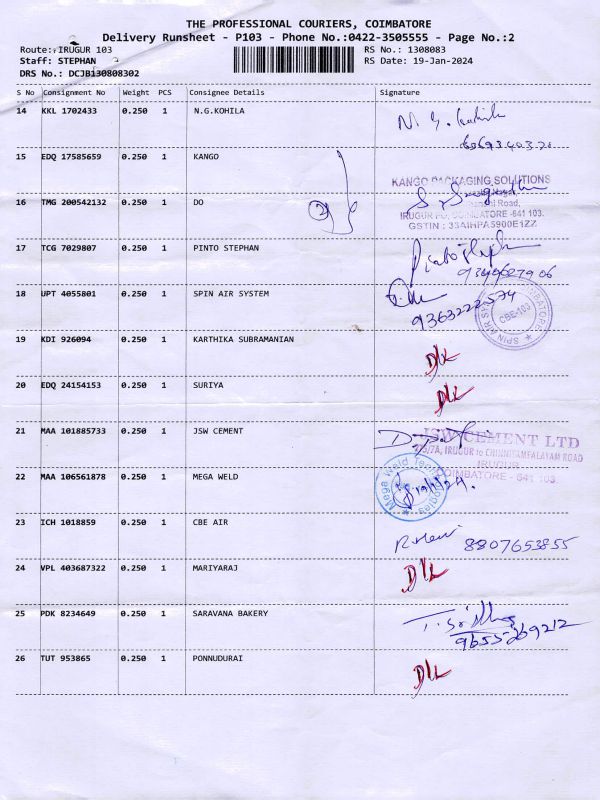 THE PROFESSIONAL COURIERS, COIMBATORE
Delivery Runsheet - P103 - Phone No.:0422-3505555 - Page No.:2
Route: IRUGUR 103 RS No.: 1308083
Staff: STEPHAN RS Date: 19-Jan-2024
DRS No.: DCJB130808302
S No Consignment No Weight PCS Consignee Details Signature
14 KKL 1702433 0.250 1 N.G.KOHILA
15 EDQ 17585659 0.250 1 KANGO
KANGO PACKAGING SOLUTIONS
16 TMG 200542132 0.250 1 DO
Road,
IRUGUR PO, COIMBATORE -641 103.
GSTIN : 33AIHPA5900E1ZZ
17 TCG 7029807 0.250 1 PINTO STEPHAN
18 UPT 4055801 0.250 1 SPIN AIR SYSTEM
9363222574
CBE-103
19 KDI 926094 0.250 1 KARTHIKA SUBRAMANIAN
D/L
20 EDQ 24154153 0.250 1 SURIYA
D/L
21 MAA 101885733 0.250 1 JSW CEMENT
JSW CEMENT LTD
IRUGUR to CHINNIYAMPALAYAM ROAD
IRUGUR
COIMBATORE - 641 103
22 MAA 106561878 0.250 1 MEGA WELD
Mega Weld Technologies
23 ICH 1018859 0.250 1 CBE AIR
8807653855
24 VPL 403687322 0.250 1 MARIYARAJ
D/L
25 PDK 8234649 0.250 1 SARAVANA BAKERY
T. Sridhar
9655269212
26 TUT 953865 0.250 1 PONNUDURAI
D/L